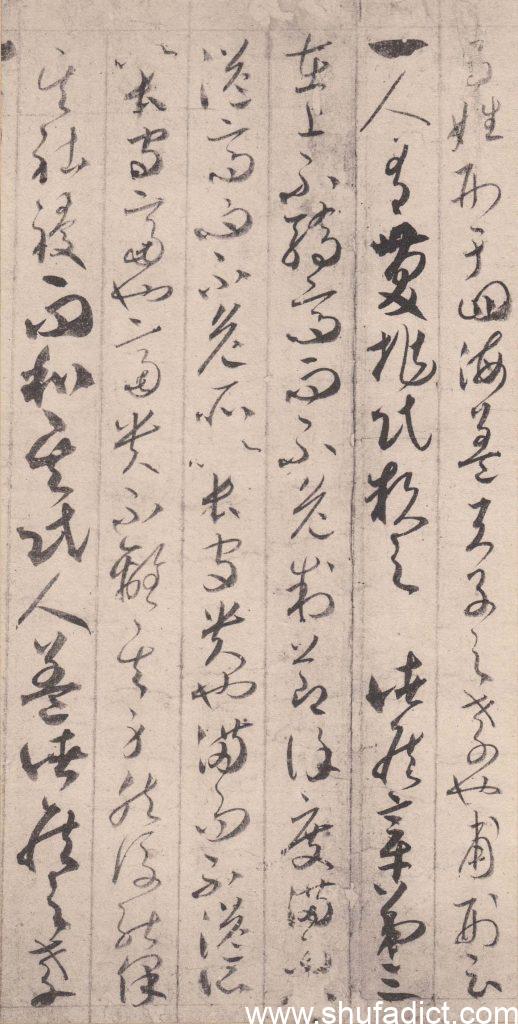 百姓刑于四海蓋天子之孝也甫刑云
一人有慶兆民賴之 諸侯章第三
在上不驕高而不危制節謹度滿而不
溢高而不危所以長守貴也滿而不溢所
以長守富也富貴不離其身然後能保
其社稷而和其民人蓋諸侯之孝
www.shufadict.com